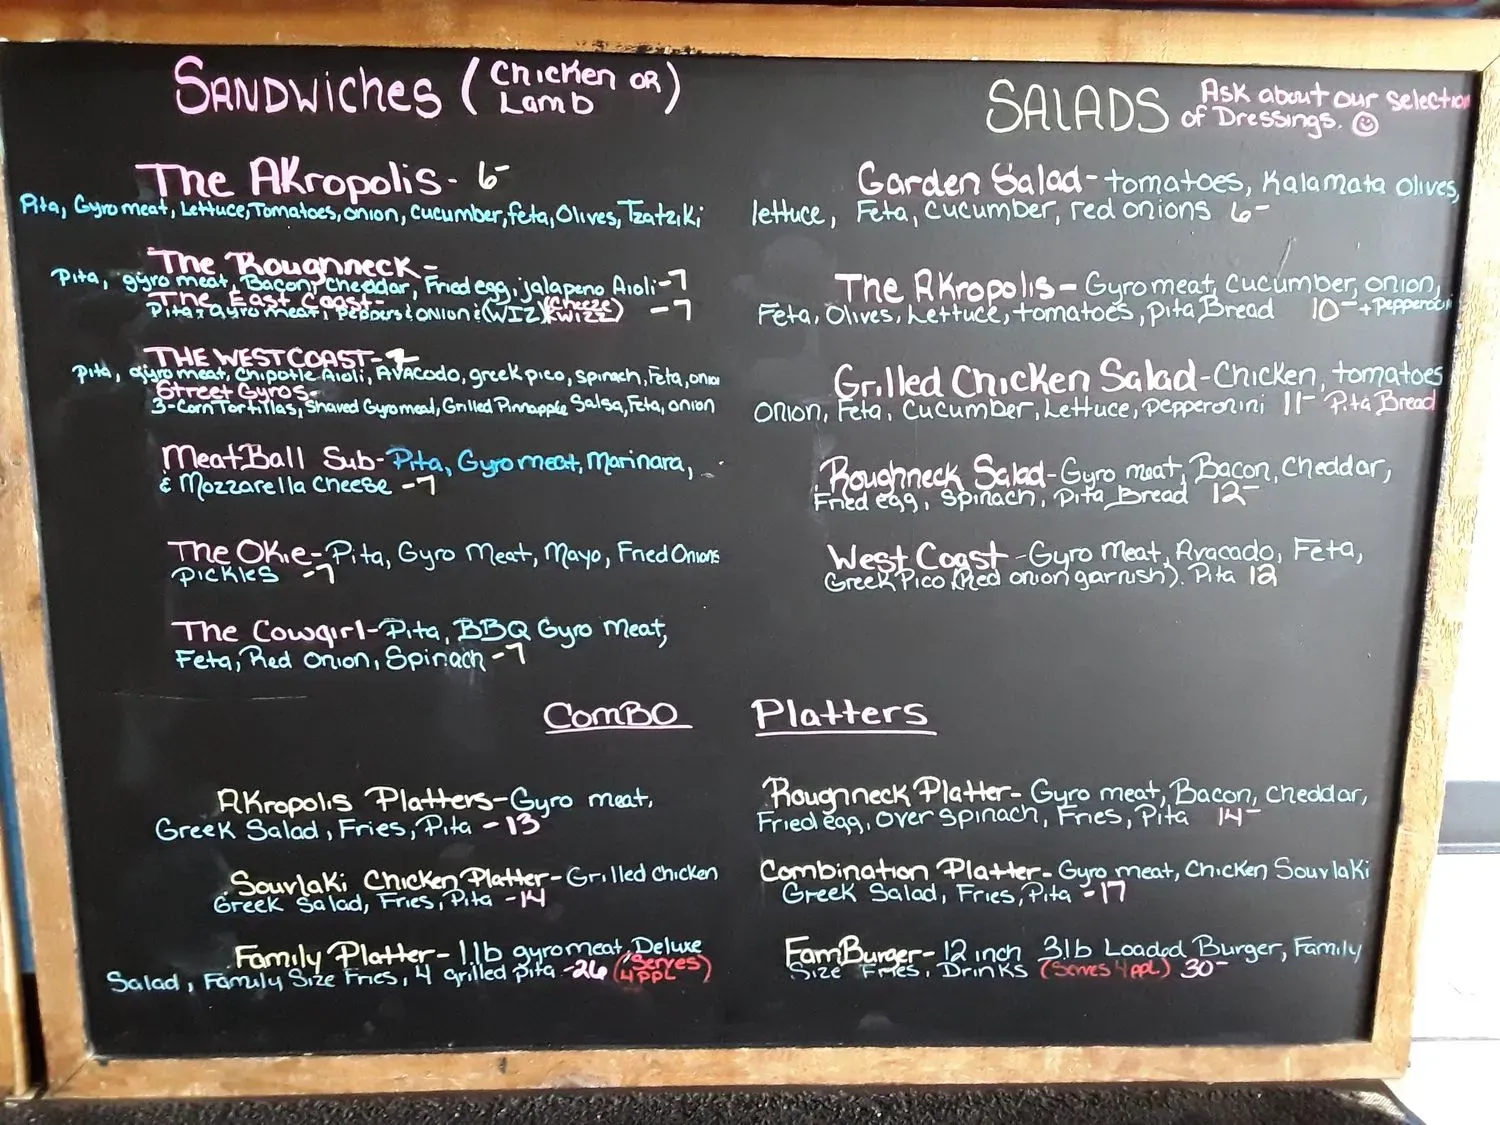 SANDWiches (Chicken OR Lamb)
The AKropolis- 6-
Pita, Gyro meat, Lettuce, Tomatoes, onion, cucumber, feta, Olives, TzatziKi
The Roughneck-
Pita, gyro meat, Bacon, cheddar, Fried egg, jalapeno Aioli-7
The East Coast-
Pita, Gyro meat, peppers & onion & (WIZ) (Cheeze Wizz) -7
THE WEST COAST-7
Pita, gyro meat, Chipotle Aioli, AVAcodo, greek pico, spinach, Feta, onion
Street Gyros-
3-Corn Tortillas, Shaved Gyro meat, Grilled Pinnapple Salsa, Feta, onion
MeatBall Sub-Pita, Gyro meat, Marinara,
& Mozzarella cheese -7
The OKie-Pita, Gyro Meat, Mayo, Fried Onions
pickles -7
The Cowgirl-Pita, BBQ Gyro Meat,
Feta, Red Onion, Spinach -7
SALADS Ask about our selection
of Dressings.
Garden Salad-tomatoes, Kalamata olives,
lettuce, Feta, cucumber, red onions 6-
The AKropolis-Gyro meat, cucumber, onion,
Feta, Olives, Lettuce, tomatoes, pita Bread 10- + Pepperocini
Grilled Chicken Salad-Chicken, tomatoes
onion, Feta, cucumber, Lettuce, pepperonini 11- Pita Bread
Roughneck Salad-Gyro meat, Bacon, cheddar,
Fried egg, Spinach, Pita Bread 12-
West Coast-Gyro Meat, Avacado, Feta,
Greek Pico (Red onion garnish). Pita 12
ComBO Platters
AKropolis Platters-Gyro meat,
Greek Salad, Fries, Pita -13
Souvlaki Chicken Platter-Grilled chicken
Greek Salad, Fries, Pita -14
Family Platter- 1 lb gyro meat, Deluxe
Salad, Family Size Fries, 4 grilled pita -26 (Serves 4 ppl)
Roughneck Platter- Gyro meat, Bacon, cheddar,
Fried egg, over spinach, Fries, Pita 14-
Combination Platter- Gyro meat, chicken Souvlaki
Greek Salad, Fries, Pita -17
FamBurger- 12 inch 3lb Loaded Burger, Family
Size Fries, Drinks (Serves 4 ppl) 30-